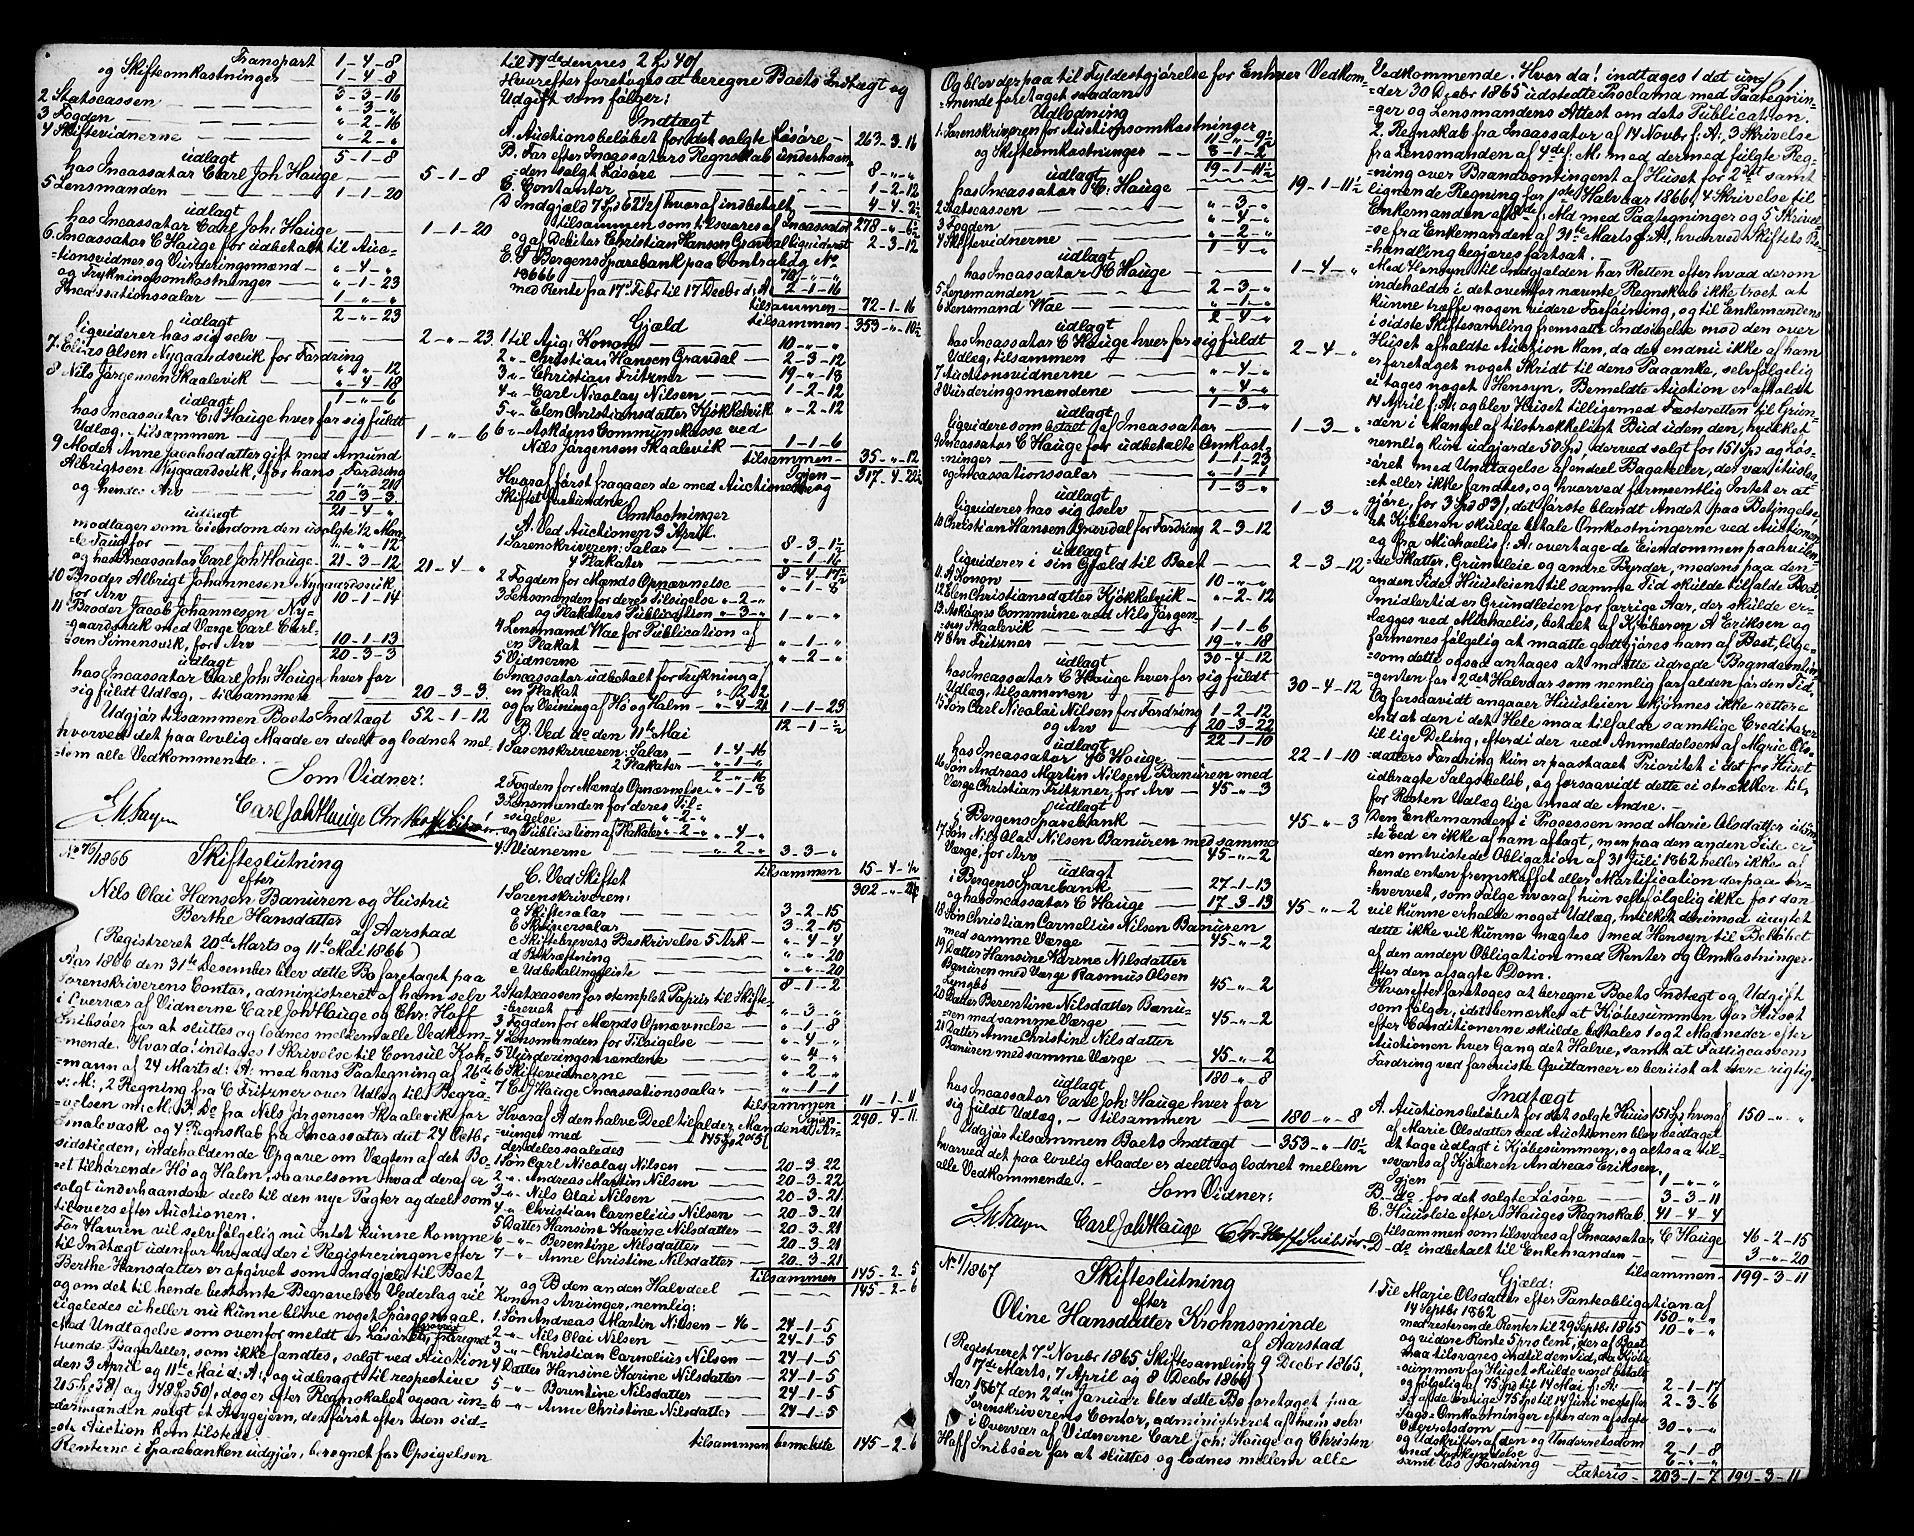 Transport 1 - 4 - 8
og Skifteomkostninger 1 - 4 - 8
3 - 3 - 16
2 Statscassen " - 3 - "
3 Fogden " - 2 - 16
4 Skiftevidnerne " - 2 - "
udlagt 5 - 1 - 8
hos Incassator Carl Joh Hauge 5 - 1 - 8
5 Lensmanden 1 - 1 - 20
udlagt
hos Incassator Carl Joh: Hauge 1 - 1 - 20
6. Incassator C Hauge for udbetalt til Auc-
=tionsvidner og Vurderingsmænd " - 4 - "
og Trykningsomkostninger " - 1 - 23
Incassationssalar 1 - " - "
udlagt 2 - " - 23
liqviderer hos sig selv 2 - " - 23
7. Elias Olsen Nygaardsvik for Fordring " - " - 12
8 Nils Jørgensen Skaalevik " - 4 - 18
udlagt 1 - " - 6
hos Incassator C: Hauge hver for sig fuldt
Udlæg, tilsammen 1 - " - 6
9 Moder Anne Jacobsdatter gift med Amund
Albrigtsen Nygaardsvik, for hans Fordring 1 - " - 20
og hendes Arv 20 - 3 - 3
udlagt 21 - 4 - "
modtager som Eiendom den usolgte 1/2
for " - " - 12
og hos Incassator Carl Joh: Hauge 21 - 3 - 12 21 - 4 - "
10 Broder Albrigt Johannesen Nygaardsvik
for Arv 10 - 1 - 14
11 Broder Jacob Johannesen Ny-
gaardsvik med Værge Carl Carl-
sen Simensvik, for Arv 10 - 1 - 13
udlagt 20 - 3 - 3
hos Incassator Carl Joh: Hauge hver for
sig fuldt Udlæg, tilsammen 20 - 3 - 3
Udgjør tilsammen Boets Indtægt 52 - 1 - 12
hvorved det paa lovlig Maade er deelt og lodnet mel-
=lem alle Vedkommende. -
Som Vidner:
Carl Joh Hauge Chr Hoff Snibsøer
No 76/1866 Skifteslutning
efter
Nils Olai Hansen Banuren og Hustru
Berthe Hansdatter af Aarstad
(Registreret 20de Marts og 11te Mai 1866)
Aar 1866 den 31te Desember blev dette Bo foretaget paa
Sorenskriverens Contor, administreret af ham selv
i Overvær af Vidnerne Carl Joh Hauge og Chr: Hoff
Snibsøer for at sluttes og lodnes mellem alle Vedkom-
=mende. Hvorda! indtoges 1 Skrivelse til Consul Koh-
=mann af 24 Marts d: A: med hans Paategning af 26de
s: M:, 2 Regning fra C Fritzner over Udlæg til Begra-
=velsen m: M: 3 Do fra Nils Jørgensen Skaalevik for
og 4 Regnskab fra Incassator dat 24 Octbr
sidstleden, indeholdende Opgave om Vægten af det Bo-
=et tilhørende Hø og Halm, saavelsom hvad deraf er
solgt underhaanden deels til den nye Pagter og deels som
tilovers efter Auctionen.
For Havren vil selvfølgelig nu Intet kunne komme
til Indtægt udenfor hvad der i Registreringen efter
Berthe Hansdatter er opgivet som Indgjæld til Boet
og om det til hende bestemte Begravelses Vederlag vil
ligeledes ei heller nu kunne blive noget Spørgsmaal.
Med Undtagelse som ovenfor meldt er Løsøret, fraregnet
tvende Bagateller, som ikke fandtes, solgt ved Auction
den 3 April og 11te Mai d: A: og udbragt til respective
215 Sp 38 β og 48 Sp 50 β, dog er efter Regnskabet ogsaa un-
dermanden solgt et, der først efter den sid-
=ste Auction kom tilstede.
Renterne i Sparebanken udgjør, beregnet for Opsigelsen
til 17de dennes 2 Sp 40 β
Hvorefter foretoges at beregne Boets Indtægt og
Udgift som følger:
Indtægt
A. Auctionsbeløbet for det solgte Løsøre 263 - 3 - 16
B. For efter Incassators Regnskab underhaan-
den solgt Løsøre 8 - " - "
C. Contanter 1 - 2 - 12
D Indgjæld 7 Sp 62 1/2 β hvoraf indbetalt 4 - 4 - 2 1/2
tilsammen som tilsvares af Incassator 278 - " - 6 1/2
og af Debitor Christian Hansen Gravdal liqvideret 2 - 3 - 12
E. I Bergens Sparebank paa Contrabog No
18666 70 - " - "
med Rente fra 17 Febr til 17 Decbr d: A: 2 - 1 - 16
tilsammen 72 - 1 - 16
tilsammen 353 - " - 10 1/2
Gjæld
1 til Aug: Konow 10 - " - "
2 " Christian Hansen Gravdal 2 - 3 - 12
3 " Christian Fritzner 19 - " - 18
4 " Carl Nicolay Nilsen 1 - 2 - 12
5 " Elen Christiansdatter Kjøkkelvik " - 2 - 12
6 " Askøens Communekasse ved
Nils Jørgensen Skaalevik 1 - 1 - 6
tilsammen 35 - " - 12
Igjen 317 - 4 - 22 1/2
Hvoraf først fragaaer de med Auctionerne og
Skiftet forbundne
Omkostninger
A. Ved Auctionen 3 April.
1 Sorenskriveren: Salar 8 - 3 - 1 1/2
4 Plakater " - 1 - 16
8 - 4 - 17 1/2
2 Fogden for Mænds Opnævnelse " - 1 - 8
3 Lensmanden for deres Tilsigelse " - 2 - "
og Plakaters Publication " - 3 - " 1 - " - "
4 Lensmand Wae for Publication af
en Plakat " - 1 - "
5 Vidnerne " - 2 - "
6 Incassator udbetalt for Trykning af
en Plakat " - 2 - 2
og for Veining af Hø og Halm " - 4 - 21 1 - 1 - 23
12 - 1 - 1/2
B. Ved do den 11te Mai
1 Sorenskriveren: Salar 1 - 4 - 16
2 Plakater " - 1 - "
2 - " - 16
2 Fogden for Mænds Opnævnelse " - 1 - 8
3 Lensmanden for deres Til-
sigelse " - 2 - "
og Publication af Plakater " - 2 - " " - 4 - "
4 Vidnerne " - 2 - " 3 - 3 - "
tilsammen 15 - 4 - 1/2
302 - " - 22
C. Ved Skiftet
1 Sorenskriveren:
a Skiftesalar 3 - 2 - 15
b Skriversalar 3 - 2 - 15
c Skiftebrevets Beskrivelse 5 Ark " - 4 - 4
d Bekræftning " - " - 20
e Udbetalingsliste " - " - 20
8 - 1 - 2
2 Statscassen for stemplet Papir til Skifte-
brevet " - 3 - "
3 Fogden for Mænds Opnævnelse " - 1 - 8
4 Lensmanden for Tilsigelse " - 4 - "
5 Vurderingsmændene " - 4 - "
6 Skiftevidnerne " - 2 - "
7 C J Hauge Incassationssalar " - 1 - 1
tilsammen 11 - 1 - 11
Igjen 290 - 4 - 11
Hvoraf A den halve Deel tilfalder Mandens Ar-
vinger med 145 Sp 2 Ort 5 β
der deles saaledes
1 Søn Carl Nicolay Nilsen 20 - 3 - 22
2 " Andreas Martin Nilsen 20 - 3 - 22
3 " Nils Olai Nilsen 20 - 3 - 21
4 " Christian Cornelius Nilsen 20 - 3 - 21
5 Datter Hansine Karine Nilsdatter 20 - 3 - 21
6 " Berentine Nilsdatter 20 - 3 - 21
7 " Anne Christine Nilsdatter 20 - 3 - 21
tilsammen 145 - 2 - 5
og B den anden Halvdeel 145 - 2 - 6
Konens Arvinger, nemlig:
1 Søn Andreas Martin Nilsen 24 - 1 - 5
2 " Nils Olai Nilsen 24 - 1 - 5
3 " Christian Cornelius Nilsen 24 - 1 - 5
4 Datter Hansine Karine Nilsdatter 24 - 1 - 5
5 " Berentine Nilsdatter 24 - 1 - 5
6 " Anne Christine Nilsdatter 24 - 1 - 5
tilsammen bemeldte 145 - 2 - 6
Og blev der paa til Fyldestgjørelse for Enhver Vedkom-
=mende foretaget saadan
Udlodning
1. Sorenskriveren for Auctionsomkostninger 11 - " - 9 1/2
og Skifteomkostninger 8 - 1 - 2
udlagt 19 - 1 - 11 1/2
hos Incassator C: Hauge 19 - 1 - 11 1/2
2 Statscassen " - 3 - "
3 Fogden " - 4 - "
4 Skiftevidnerne " - 2 - "
udlagt 1 - 4 - "
hos Incassator C Hauge 1 - 4 - "
5 Lensmanden 2 - 3 - "
6 Lensmand Wae " - 1 - "
udlagt 2 - 4 - "
hos Incassator C Hauge hver for sig fuldt
Udlæg, tilsammen 2 - 4 - "
7 Auctionsvidnerne " - 4 - "
8 Vurderingsmændene " - 4 - "
udlagt 1 - 3 - "
liqvidere som betalt af Incassator 1 - 3 - "
9 Incassator C Hauge for udbetalte Omkost-
ninger 1 - 1 - 23
og Incassationssalar " - 1 - 1
udlagt 1 - 3 - "
liqviderer hos sig selv 1 - 3 - "
10 Christian Hansen Gravdal for Fordring 2 - 3 - 12
udlagt
liqviderer i sin Gjæld til Boet 2 - 3 - 12
11 A. Konow 10 - " - "
12 Elen Christiansdatter Kjøkkelvik " - 2 - 12
13 Askøens Commune ved Nils Jørgen-
sen Skaalevik 1 - 1 - 6
14 Chr Fritzner 19 - " - 18
udlagt 30 - 4 - 12
hos Incassator C Hauge hver for sig fuldt
Udlæg, tilsammen 30 - 4 - 12
15 Søn Carl Nicolai Nilsen for Fordring 1 - 2 - 12
og Arv 20 - 3 - 22
udlagt 22 - 1 - 10
hos Incassator C Hauge 22 - 1 - 10
16 Søn Andreas Martin Nilsen Banuren med
Værge Christian Fritzner, for Arv 45 - " - 3
udlagt
i Bergens Sparebank 45 - " - 3
17 Søn Nils Olai Nilsen Banuren med samme
Værge, for Arv 45 - " - 2
udlagt
i Bergens Sparebank 27 - 1 - 13
og hos Incassator C Hauge 17 - 3 - 13 45 - " - 2
18 Søn Christian Cornelius Nilsen Banuren
med samme Værge 45 - " - 2
19 Datter Hansine Karine Nilsdatter
Banuren med Værge Rasmus Olsen
Lyngbø 45 - " - 2
20 Datter Berentine Nilsdatter Banu-
=ren med samme Værge 45 - " - 2
21 Datter Anne Christine Nilsdatter
Banuren med samme Værge 45 - " - 2
180 - " - 8
udlagt
hos Incassator Carl Joh: Hauge hver for
sig fuldt Udlæg, tilsammen 180 - " - 8
Udgjør tilsammen Boets Indtægt 353 - " - 10 1/2
hvorved det paa lovlig Maade er deelt og lodnet mellem
alle Vedkommende. -
Som Vidner:
Carl Joh Hauge Chr Hoff Snibsøer
No 1/1867 Skifteslutning
efter
Oline Hansdatter Krohnsminde
af Aarstad
(Registreret 7 Novbr 1865 Skiftesamling 9 Decbr 1865,
17de Marts, 7 April og 8 Decbr 1866)
Aar 1867 den 2den Januar blev dette Bo foretaget paa
Sorenskriverens Contor, administreret af ham selv
i Overvær af Vidnerne Carl Joh: Hauge og Christen
Hoff Snibsøer for at sluttes og lodnes mellem alle
161
Vedkommende. Hvor da! indtoges 1 det un-
=der 30 Decbr 1865 udstedte Proclama med Paategnin-
=ger og Lensmandens Attest om dets Publication.
2. Regnskab fra Incassator af 14 Novbr f: A:, 3 Skrivelse
fra Lensmanden af 4de f: M: med dermed fulgte Reg-
=ning over Brandcontingent af Huset for 2det samt
lignende Regning for 1ste Halvaar 1866, 4 Skrivelse til
Enkemanden af 8de f: Md med Paategninger og 5 Skrivel-
=se fra Enkemanden af 31te Marts f: A:, hvorved Skiftets Be-
=handling begjøres fortsat.
Med Hensyn til Indgjælden har Retten efter hvad derom
indeholdes i det ovenfor nævnte Regnskab ikke troet at
kunne træffe nogen videre Forføining, og til Enkemandens
i sidste Skiftesamling fremsatte Indsigelse mod den over
Huset afholdte Auction kan, da der endnu ikke af ham
er foretaget noget Skridt til dens Paaanke, selvfølgelig
ei tages noget Hensyn. Bemeldte Auction er afholdt
14 April f: A: og blev Huset tilligemed Fæsteretten til Grun-
=den i Mangel af tilstrækkeligt Bud uden den, hvilket
nemlig kun udgjorde 50 Spd, derved solgt for 151 Spd og Løs-
=øret med Undtagelse af endeel Bagateller, der var itusla-
=et eller ikke fandtes, og hvorved formeentlig Intet er at
gjøre, for 3 Spd 83 β, det første blandt Andet paa Betingelse
at Kjøberen skulde betale Omkostningerne ved Auctionen
og fra Michaelis f: A: overtage de Eiendommen paahvilen-
=de Skatter, Grundleie og andre Byrder, medens paa den
anden Side Huusleien til samme Tid skulde tilfalde Boet.
Imidlertid er Grundleien for forrige Aar, der skulde er-
=lægges ved Michaelis, betalt af Kjøberen A Eriksen og
formenes følgelig at maatte godtgjøres ham af Boet, lige-
=som dette ogsaa antages at maatte udrede Brandcontin-
=genten for 2det Halvaar som nemlig forfalden før den Tid.
Og forsaavidt angaaer Huusleien skjønnes ikke rettere
end at den i det Hele maa tilfalde samtlige Creditorer
til lige Deling, efterdi der ved Anmeldelsen af Marie Ols-
=datters Fordring kun er paastaaet Prioritet i det for Huset
udbragte Salgsbeløb, og forsaavidt dette ei strækker til,
for Resten Udlæg lige med de Andre. -
Den Enkemanden i Processen mod Marie Olsdatter idøm-
=te Eed er ikke af ham aflagt, men paa den anden Side er
den omtvistede Obligation af 31 Juli 1862 heller ikke af
hende enten fremskaffet eller Mortification derpaa er-
=hvervet, som Følge hvoraf hun selvfølgelig ikke for den
vil kunne erholde noget Udlæg, hvilket derimod
dette ikke vil kunne nægtes med Hensyn til Beløbet
af den anden Obligation med Renter og Omkostninger
efter den afsagte Dom.
Hvorefter foretoges at beregne Boets Indtægt og Udgift
som følger, idet bemærkes at Kjøbesummen for Huset
efter Conditionerne skulde betales 1 og 2 Maaneder efter
Auctionen hver Gang det Halve, samt at Fattigcassens
Fordring ved foreviste Qvittancer er beviist at være rigtig.
Indtægt
A. Auctionsbeløbet for det solgte Huus 151 Sp, hvoraf 150 - " - "
af Marie Olsdatter ved Auctionen blev vedtaget
at tage udlagt i Kjøbesummen, og altsaa til-
svares af Kjøberen Andreas Eriksen.
Igjen 1 - " - "
B - do. for det solgte Løsøre 3 - 3 - 11
C. Huusleie efter Hauges Regnskab 41 - 4 - 4
tilsammen som tilsvares af Incassator C Hauge 46 - 2 - 15
D - do indbetalt til Enkemanden 3 - " - 20
tilsammen 199 - 3 - 11
Gjæld:
1. Til Marie Olsdatter efter Panteobligation af
14 Septbr 1862 150 - " - "
med resterende Renter til 29 Septbr 1865 10 - " - "
og videre Rente 5 pro Cent, der af Boet
maa tilsvares indtil den Tid, da Kjøbe-
summen for Huset skulde været betalt
og følgelig af 75 Spd til 14 Mai f: A: 2 - 1 - 17
og af de øvrige 75 Spd til 14 Juni næstefter 2 - 3 - 6
Sags-Omkostninger efter den afsagte
Overretsdom 30 - " - "
og Udskrifter af den og Underretsdom
med Forkyndelse 2 - 1 - 8
samt løs Fordring 6 - " - "
Lateris 203 - 1 - 7 199 - 3 - 11